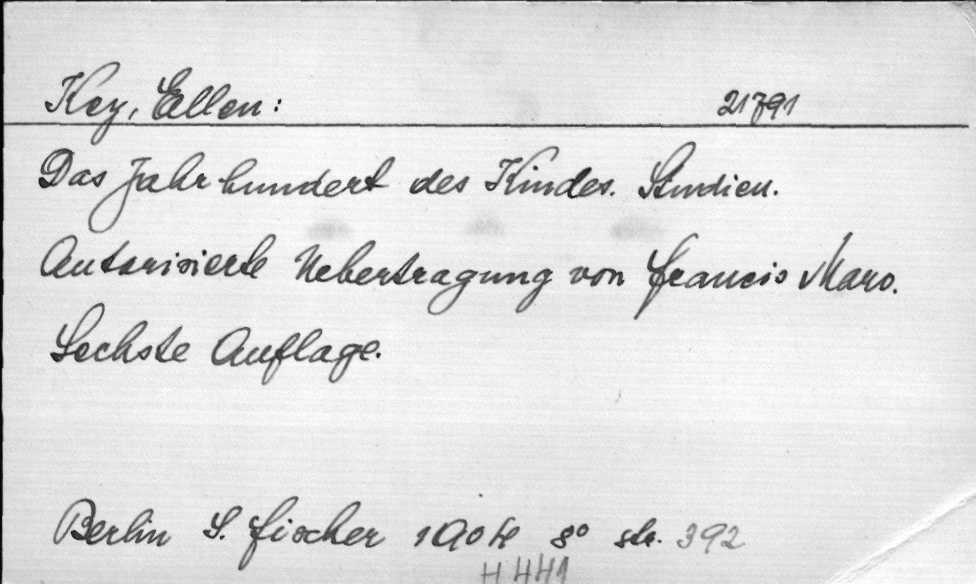 Key, Ellen: 21791
Das Jahrhundert des Kindes. Studien.
Autorisierte Uebertragung von Francis Maro.
Sechste Auflage.
Berlin S. Fischer 1904 8° str. 392
H 441